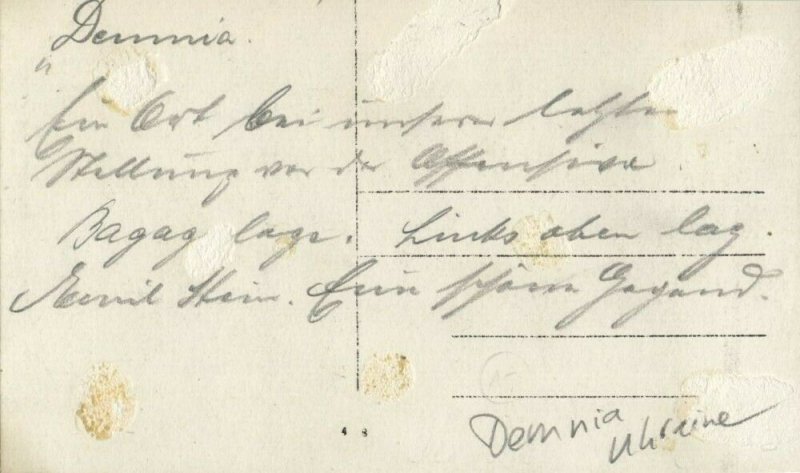 Demnia.
Ein Ort bei unserer letzten
Stellung vor der Offensive.
Bagag lage. Links oben lag.
Stein. Eine schöne Gegend.
4 8
Demnia
Ukraine